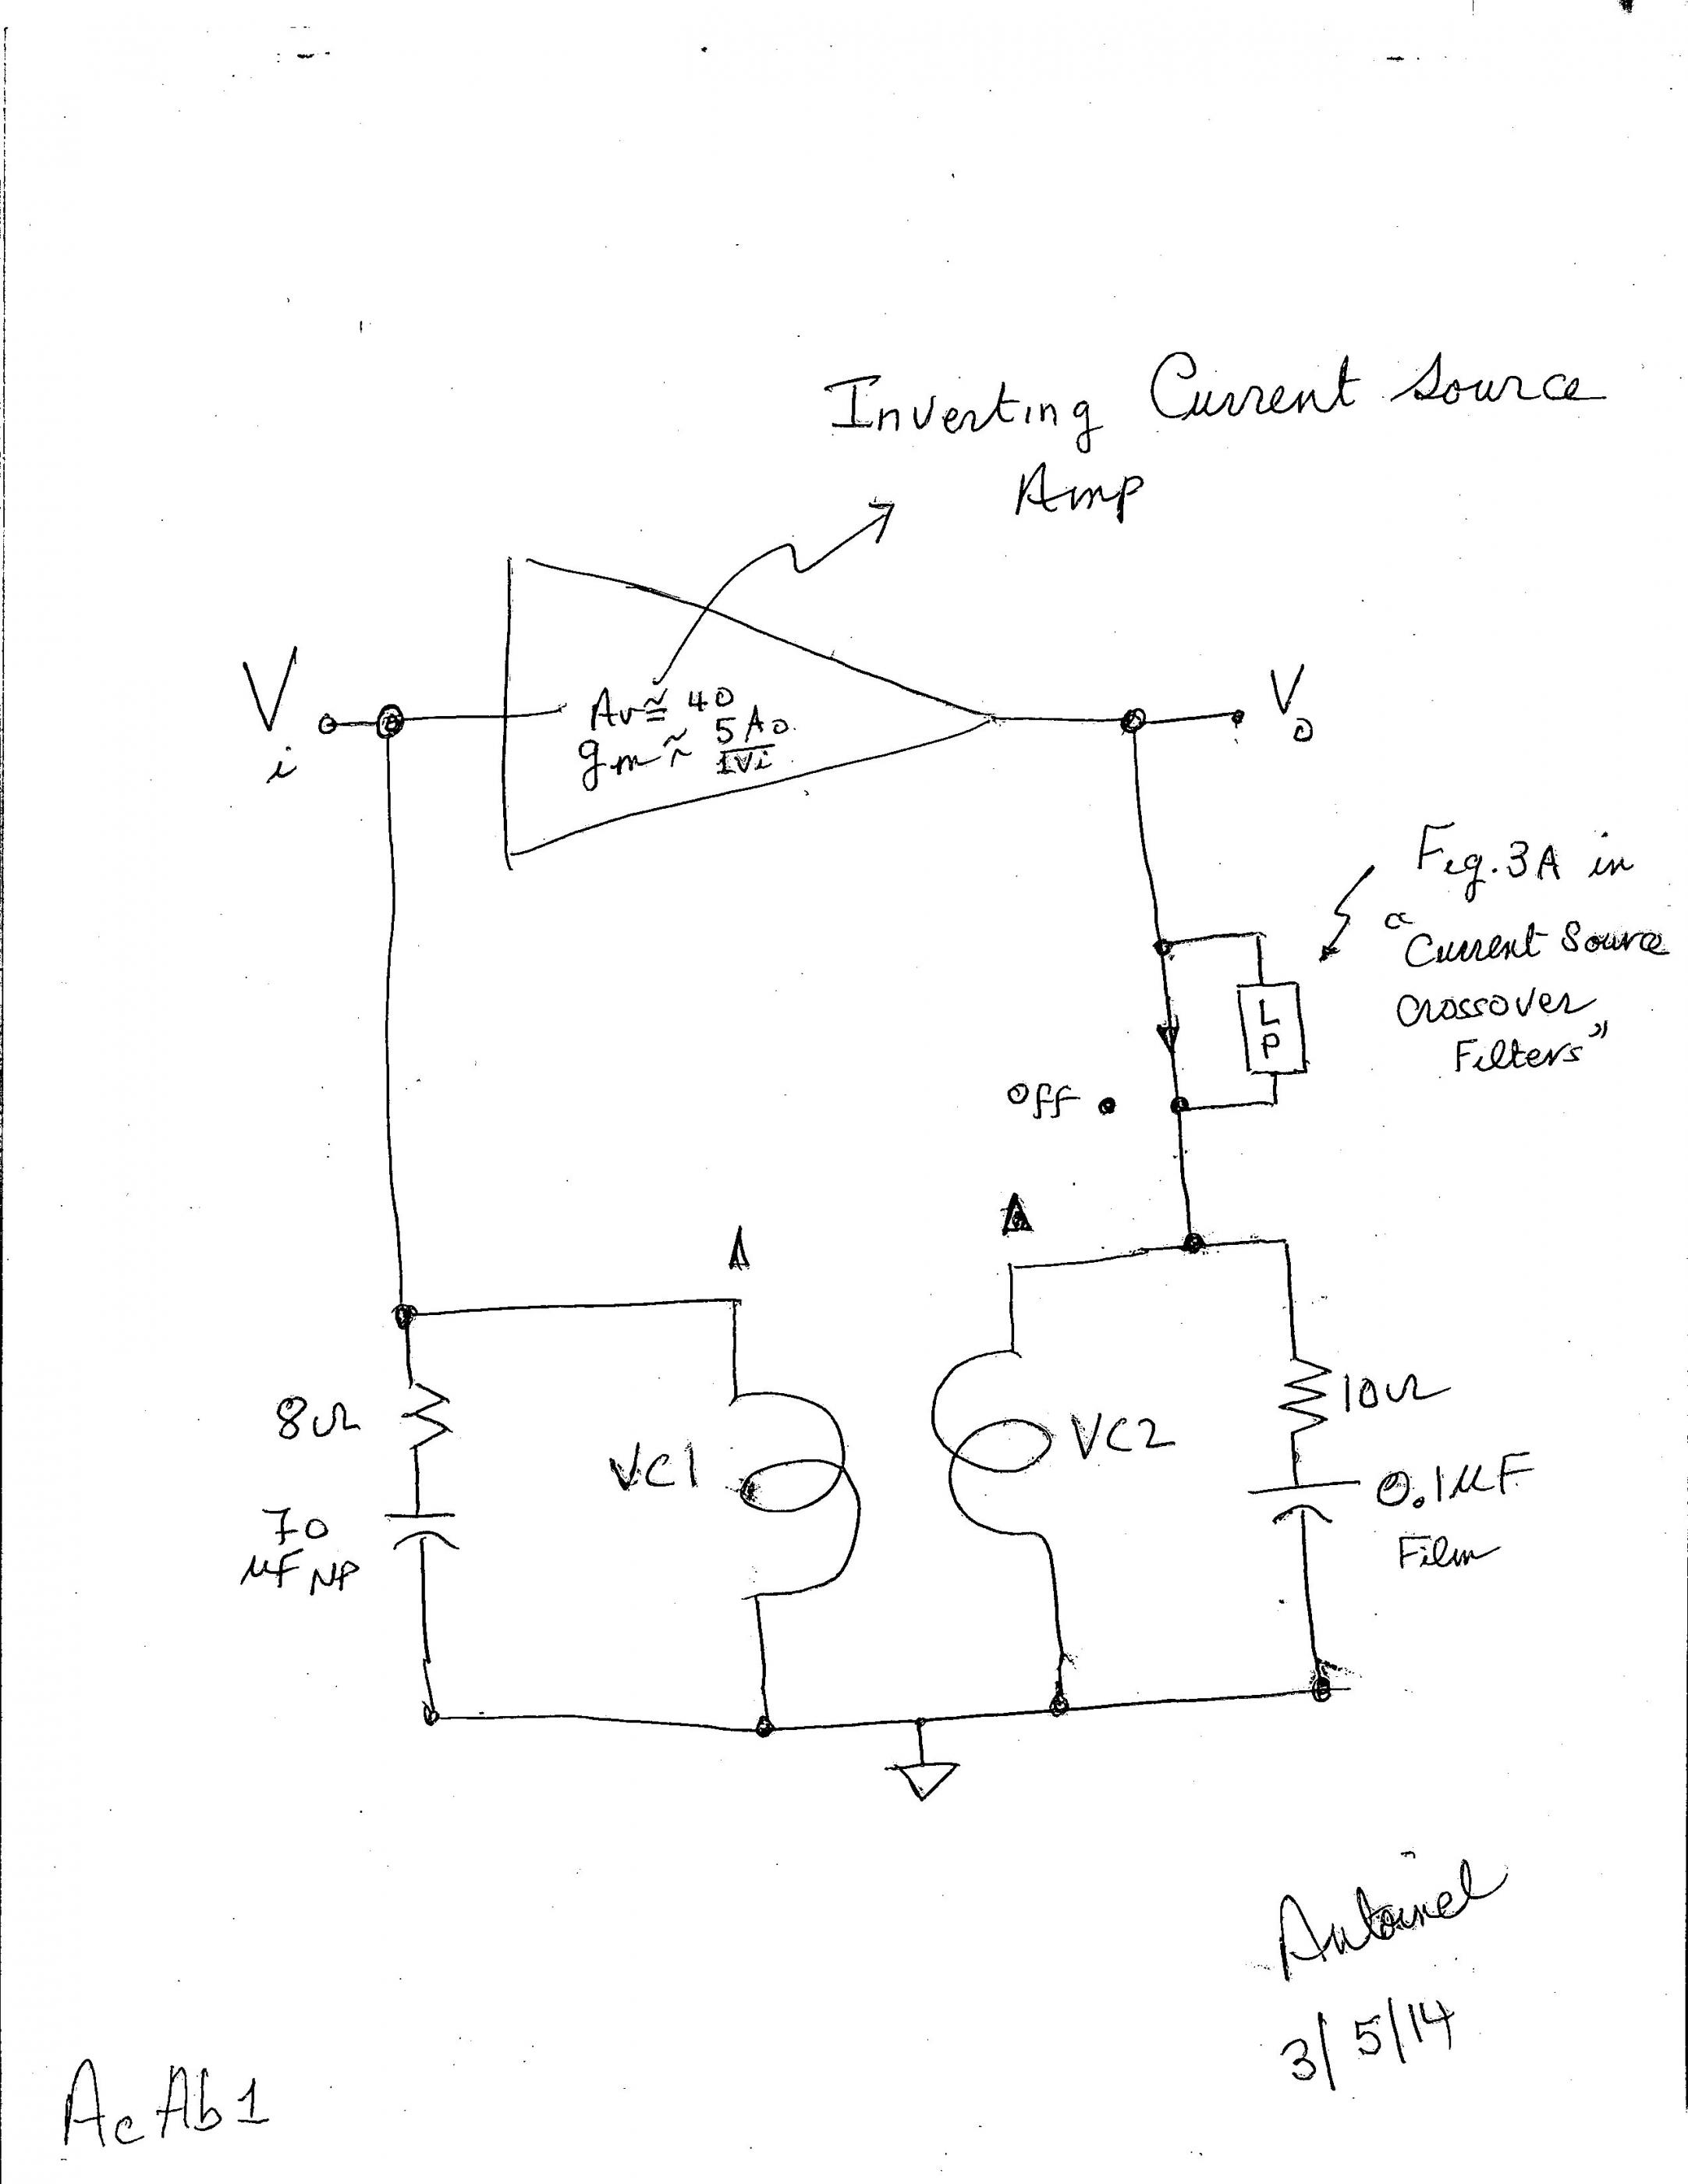 Inverting Current Source
Amp
Av ≅ 40
gm ≈ 5Ao
1Vi
Vi
Vo
Fig. 3A in
"Current Source
Crossover
Filters"
LP
Off
8Ω
70
µF NP
VC1
VC2
10Ω
0.1µF
Film
Antoinel
3/5/14
AcAb1